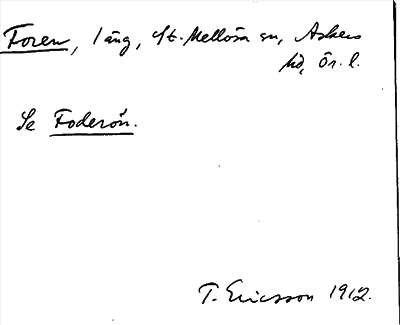 Foren, läng, St. Mellösa sn, Askers
hd, Ör. l.
Se Foderön.
T. Ericsson 1912.